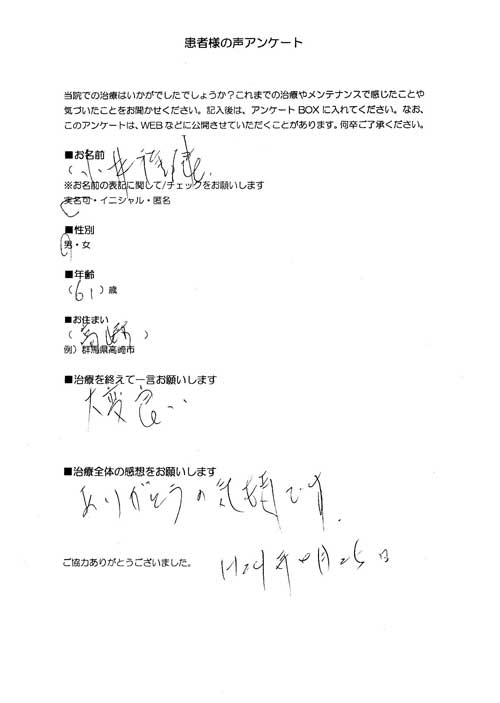 患者様の声アンケート
当院での治療はいかがでしたでしょうか？これまでの治療やメンテナンスで感じたことや
気づいたことをお聞かせください。記入後は、アンケートBOXに入れてください。なお、
このアンケートは、WEBなどに公開させていただくことがあります。何卒ご了承ください。
■お名前
（小井
※お名前の表記に関して/チェックをお願いします
実名可・イニシャル・匿名
■性別
男・女
■年齢
（61）歳
■お住まい
（高崎）
例）群馬県高崎市
■治療を終えて一言お願いします
大変良い
■治療全体の感想をお願いします
ありがとうの気持です.
ご協力ありがとうございました。
年 月25日